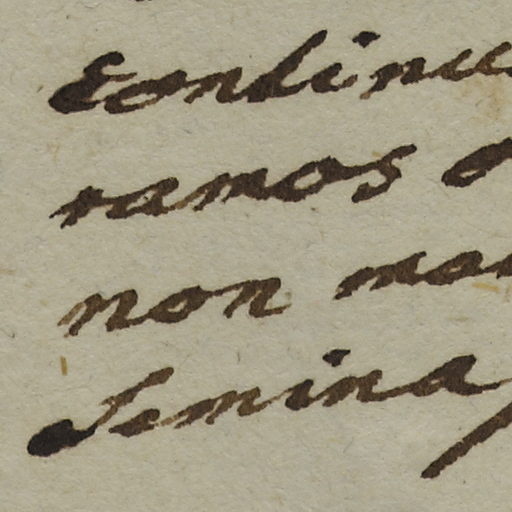 Continu
ramos o
non mo
Semina